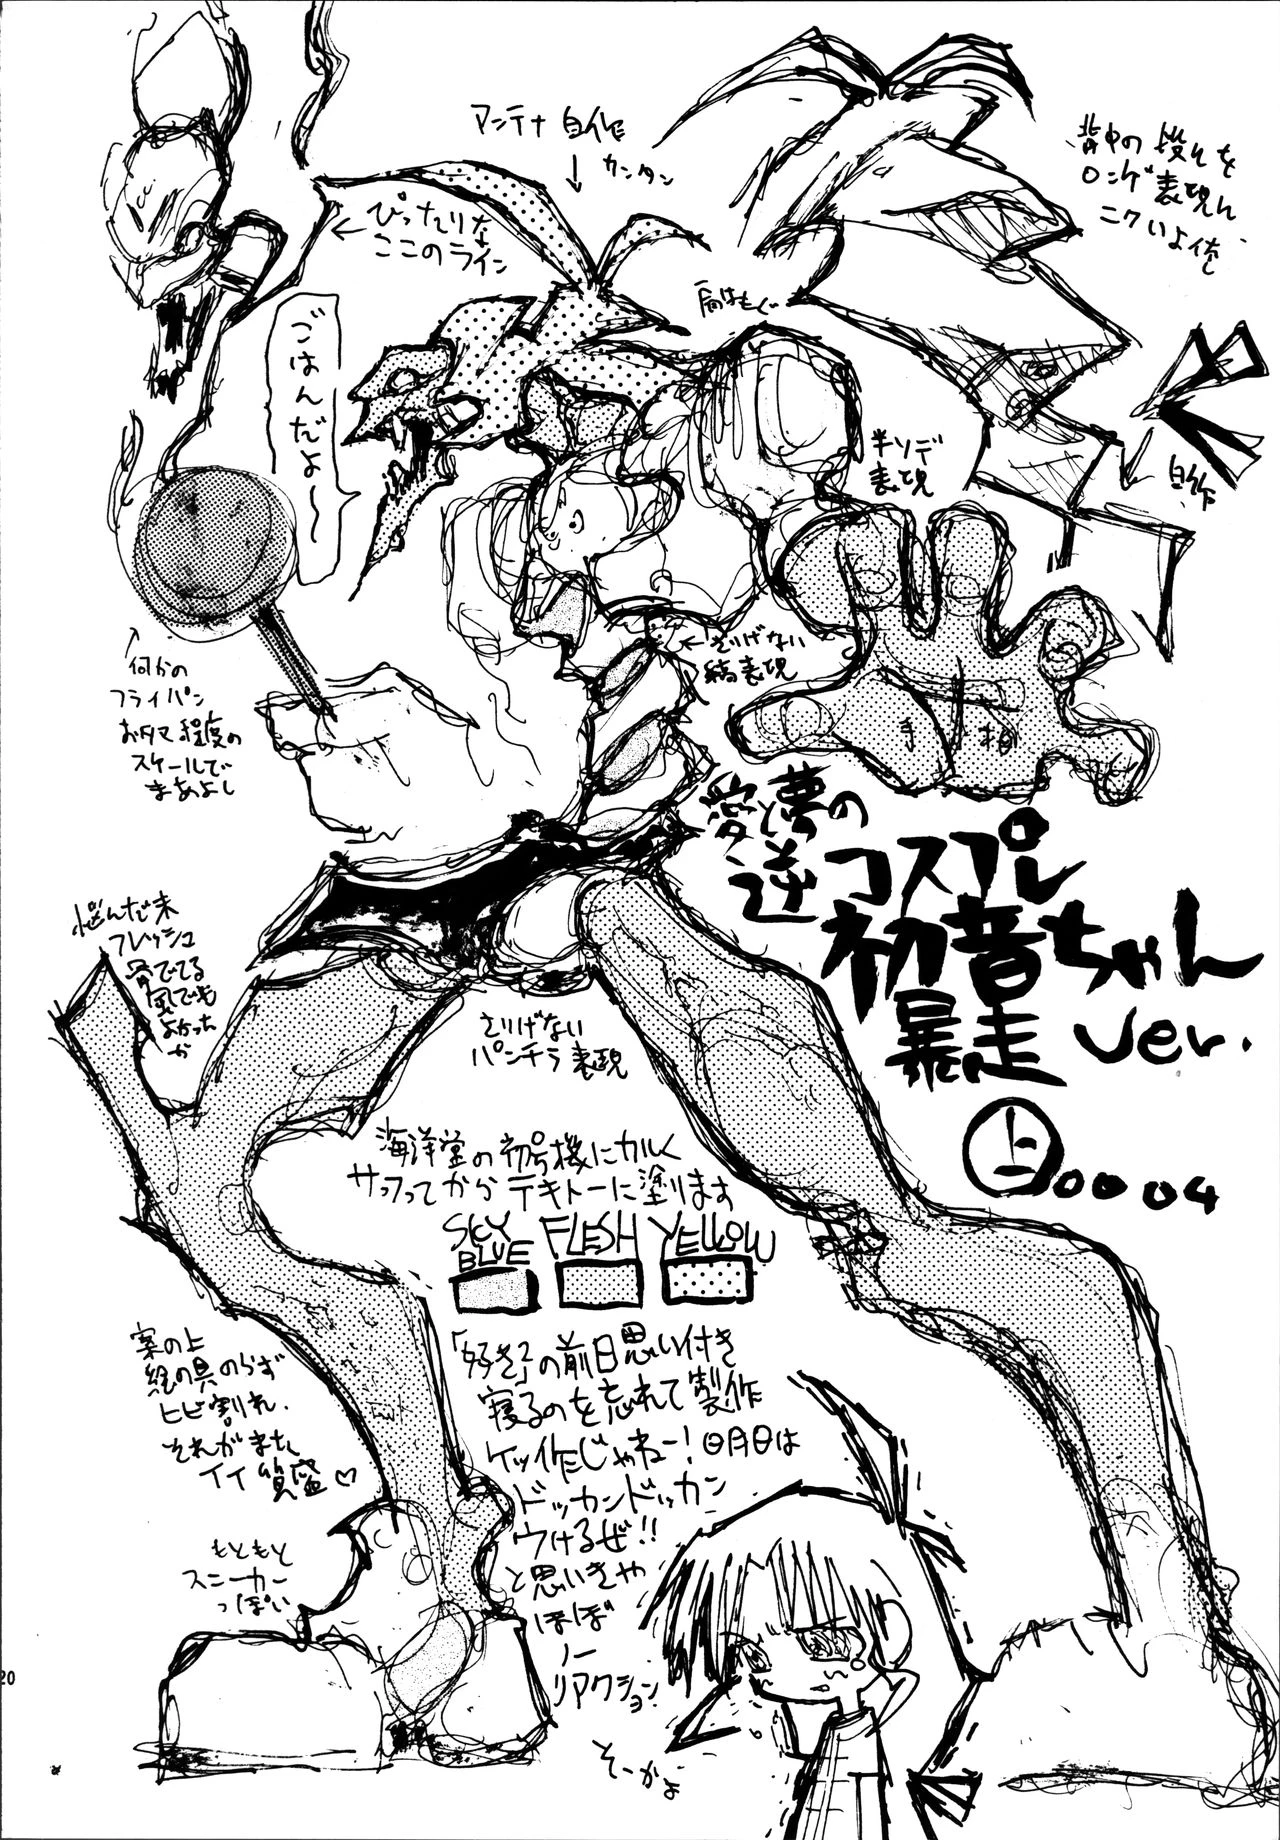 アンテナ 自作
カンタン
ぴったりな
ここのライン
背中の段々を
ロンゲ表現ん
ニクいよ俺
肩はもぐ
ごはんだよ〜
半ソデ
表現
自作
さりげない
縞表現
手相
何かの
フライパン
お好み程度の
スケールで
まあよし
愛と夢の
逆コスプレ
初音ちゃん
暴走 ver.
上0004
悩んだ末
フレッシュ
骨でてる
風でも
よかった
か
さりげない
パンチラ表現
海洋堂の初号機にカルく
サフってからテキトーに塗ります
SKY BLUE
FLESH
YELLOW
案の上
絵の具のらず
ヒビ割れ.
それがまた
イイ質感♡
もともと
スニーカー
っぽい
「好き」の前日思い付き
寝るのを忘れて製作
ケッ作じゃねー!明日は
ドッカンドッカン
ウけるぜ!!
と思いきや
ほぼ
ノー
リアクション
そーかよ
20